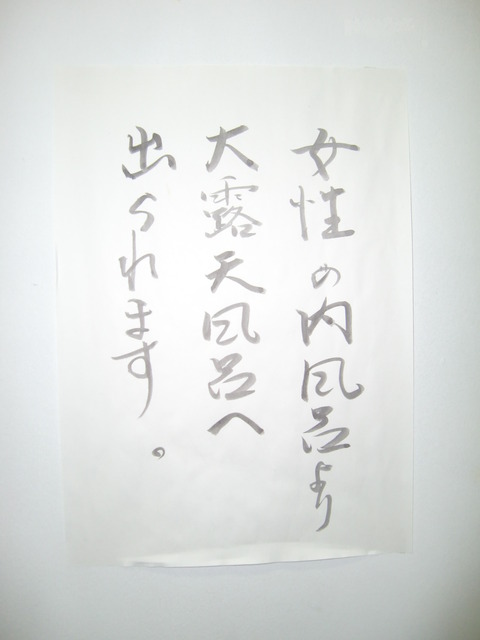 女性の内風呂より
大露天風呂へ
出られます。